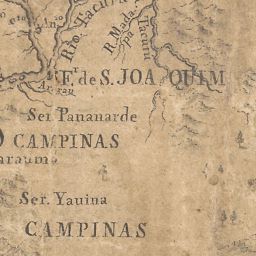 Rio Tacutu
R. Mata
pa
Tacutu
F. de S. JOAQUIM
Ser Pananarde
CAMPINAS
arauma
Ser. Yauina
CAMPINAS